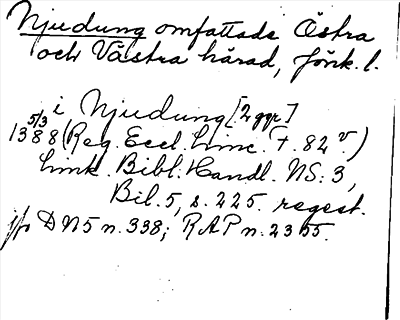 Njudung omfattade Östra
och Västra härad, Jönk. l.
i Njudung [2 ggr]
5/3 1388 (Reg. Eccl. Linc. F. 82 v.)
Link. Bibl. Handl. NS: 3,
Bil. 5, s. 225. regest.
jfr DN 5 n. 338; RAP n. 2355.